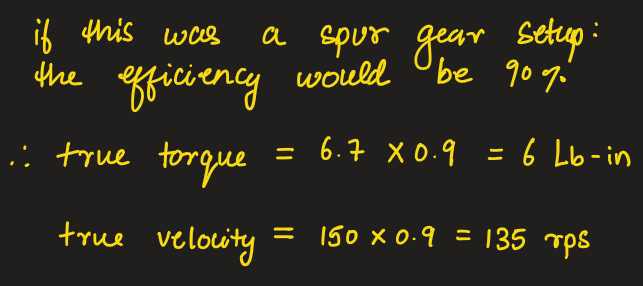 if this was a spur gear setup:
the efficiency would be 90%
∴ true torque = 6.7 x 0.9 = 6 Lb-in
true velocity = 150 x 0.9 = 135 rps